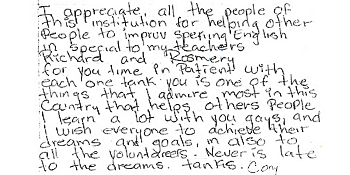 I appreciate, all the people of
this institution for helping other
People to improv speriing English
in special to my teachers
Richard and Rosmery
for you time in Patient with
each one tank. you is one of the
things that I admire most in this
Country that helps others People
I learn a lot with you gays, and
I wish everyone to achieve their
dreams and goals, m also to
all the volontareers. Never is late
to the dreams. tanks. Cony